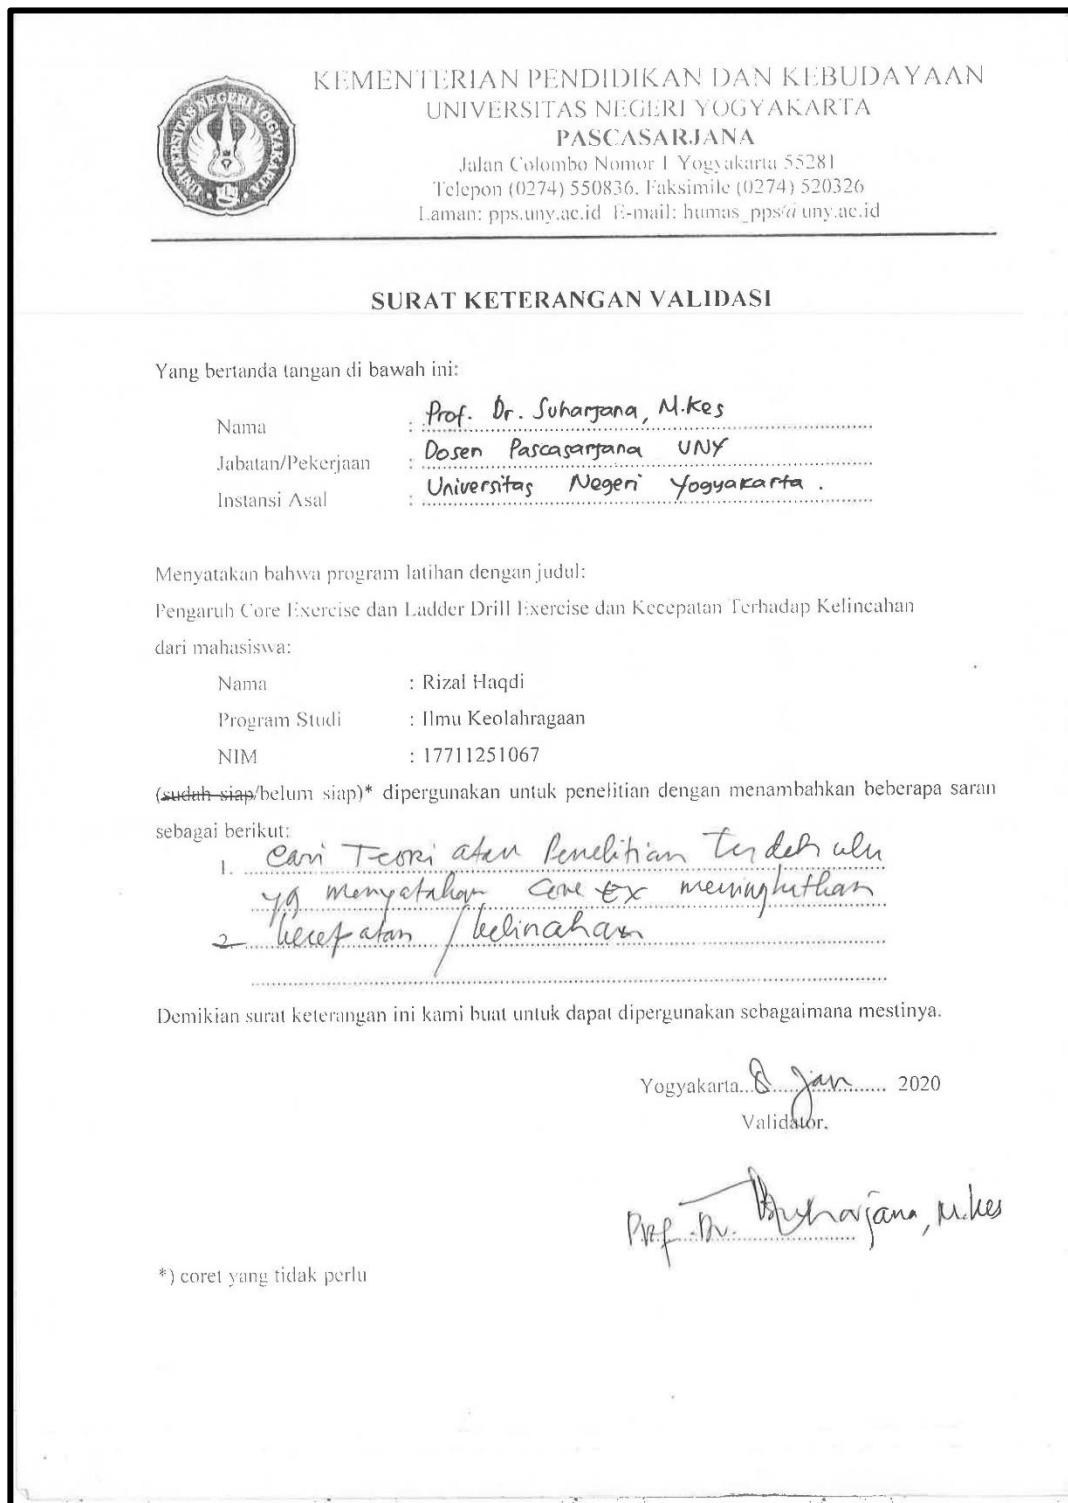 UNIVERSITAS NEGERI YOGYAKARTA
KEMENTERIAN PENDIDIKAN DAN KEBUDAYAAN
UNIVERSITAS NEGERI YOGYAKARTA
PASCASARJANA
Jalan Colombo Nomor 1 Yogyakarta 55281
Telepon (0274) 550836, Faksimile (0274) 520326
Laman: pps.uny.ac.id E-mail: humas_pps@uny.ac.id
SURAT KETERANGAN VALIDASI
Yang bertanda tangan di bawah ini:
Nama : Prof. Dr. Suharjana, M.Kes
Jabatan/Pekerjaan : Dosen Pascasarjana UNY
Instansi Asal : Universitas Negeri Yogyakarta.
Menyatakan bahwa program latihan dengan judul:
Pengaruh Core Exercise dan Ladder Drill Exercise dan Kecepatan Terhadap Kelincahan
dari mahasiswa:
Nama : Rizal Haqdi
Program Studi : Ilmu Keolahragaan
NIM : 17711251067
(sudah siap/belum siap)* dipergunakan untuk penelitian dengan menambahkan beberapa saran
sebagai berikut:
1. Cari Teori atau Penelitian terdahulu
yg menyatakan Core Ex meningkatkan
2. kecepatan / kelincahan
Demikian surat keterangan ini kami buat untuk dapat dipergunakan sebagaimana mestinya.
Yogyakarta...8 Jan 2020
Validator,
Prof. Dr. Suharjana, M.Kes
*) coret yang tidak perlu